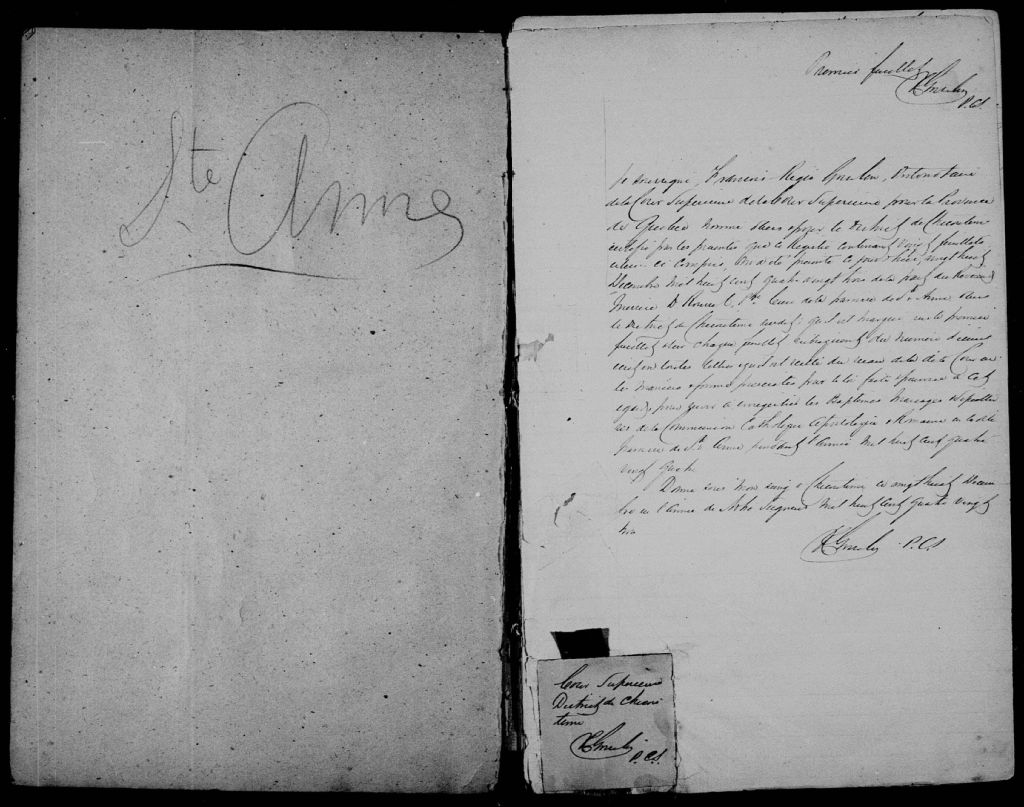 Ste Anne
Premier feuillet
P.C.S.
Je soussigné, François Régis Protonotaire
de la Cour Supérieure de la Cour Supérieure pour la Province
de Québec nommé dans & pour le District de Chicoutimi
certifie par les présentes que le Registre contenant feuillets
celui ci compris, m'a été présenté ce jour vingt huit
Décembre mil huit cent quatre vingt trois de la part du Révérend
Messire D Roussel Ptre Curé de la paroisse de Ste Anne dans
le District de Chicoutimi qu'il est marqué sur le premier
feuillet & sur chaque feuillet subséquent du numéro d'icelui
écrit en toutes lettres & qu'il est scellé du sceau de la dite Cour en
la manière & forme prescrites par la loi faite & pourvue à cet
égard, pour servir à enregistrer les Baptêmes Mariages & Sépultu
res de la Communion Catholique Apostolique & Romaine en la dite
Paroisse de Ste Anne pendant l'année mil huit cent quatre
vingt quatre
Donné sous mon seing à Chicoutimi ce vingt huit Décem
bre en l'année de Notre Seigneur mil huit cent quatre vingt
trois
P.C.S.
Cour Supérieure
District de Chicou
timi
P.C.S.